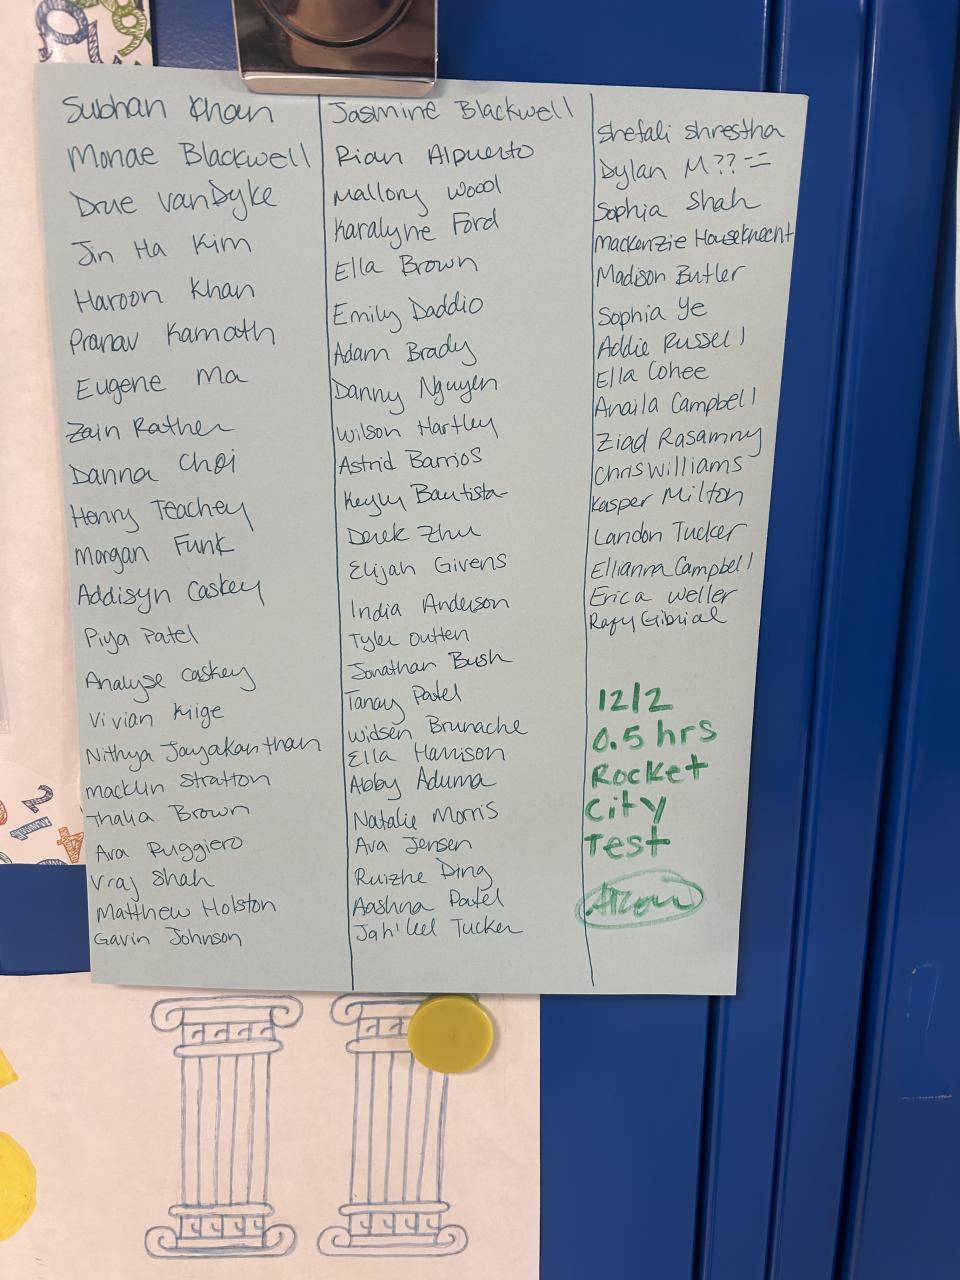 Subhan Khan
Monae Blackwell
Drue vanDyke
Jin Ha Kim
Haroon Khan
Pranav Kamath
Eugene Ma
Zain Rather
Danna Choi
Henry Teachey
Morgan Funk
Addisyn Caskey
Piya Patel
Analyse Caskey
Vivian Kiige
Nithya Jayakanthan
Macklin Stratton
Thalia Brown
Ava Ruggiero
Vraj Shah
Matthew Holston
Gavin Johnson
Jasmine Blackwell
Rian Alpuerto
Mallory Wood
Karalyne Ford
Ella Brown
Emily Daddio
Adam Brady
Danny Nguyen
Wilson Hartley
Astrid Barrios
Bautista
Derek Zhu
Elijah Givens
India Anderson
Tyler Outten
Jonathan Bush
Tanay Patel
Widsen Brunache
Ella Harrison
Abby Aduma
Natalie Morris
Ava Jensen
Ruizhe Ding
Aashna Patel
Tucker
Shefali Shrestha
Dylan M??
Sophia Shah
Mackenzie Houseknecht
Madison Butler
Sophia Ye
Addie Russell
Ella Cohee
Anaila Campbell
Ziad Rasamny
Chris Williams
Kasper Milton
Landon Tucker
Ellianna Campbell
Erica Weller
12/2
0.5 hrs
Rocket
City
Test